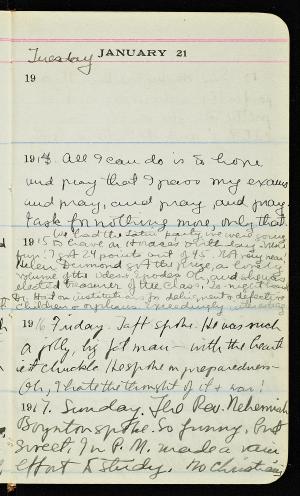 Tuesday JANUARY 21
19
1914. All I can do is to hope
and pray that I pass my exams
and pray, and pray, and pray.
I ask for nothing more, only that.
We had the Latin party we were going
1915 to have on Horace's birthday. Much
fun! I got 24 points out of 45. Not very near!
Helen Diamond got the prize, a lovely
volume of the Odes & Epodes Oh, and
elected treasurer of the Class. To-night
Dr. Hart on institutions for delinquent & defective
children & orphans exceedingly interesting
1916 Friday. Taft spoke. He was such
a jolly, big fat man – with the heartiest
chuckle. He spoke on preparedness –
Oh, I hate the thought of it & war!
1917. Sunday. The Rev. Nehemiah
Boynton spoke. So funny. And
sweet. In P.M. made a vain
effort to study. No Christian